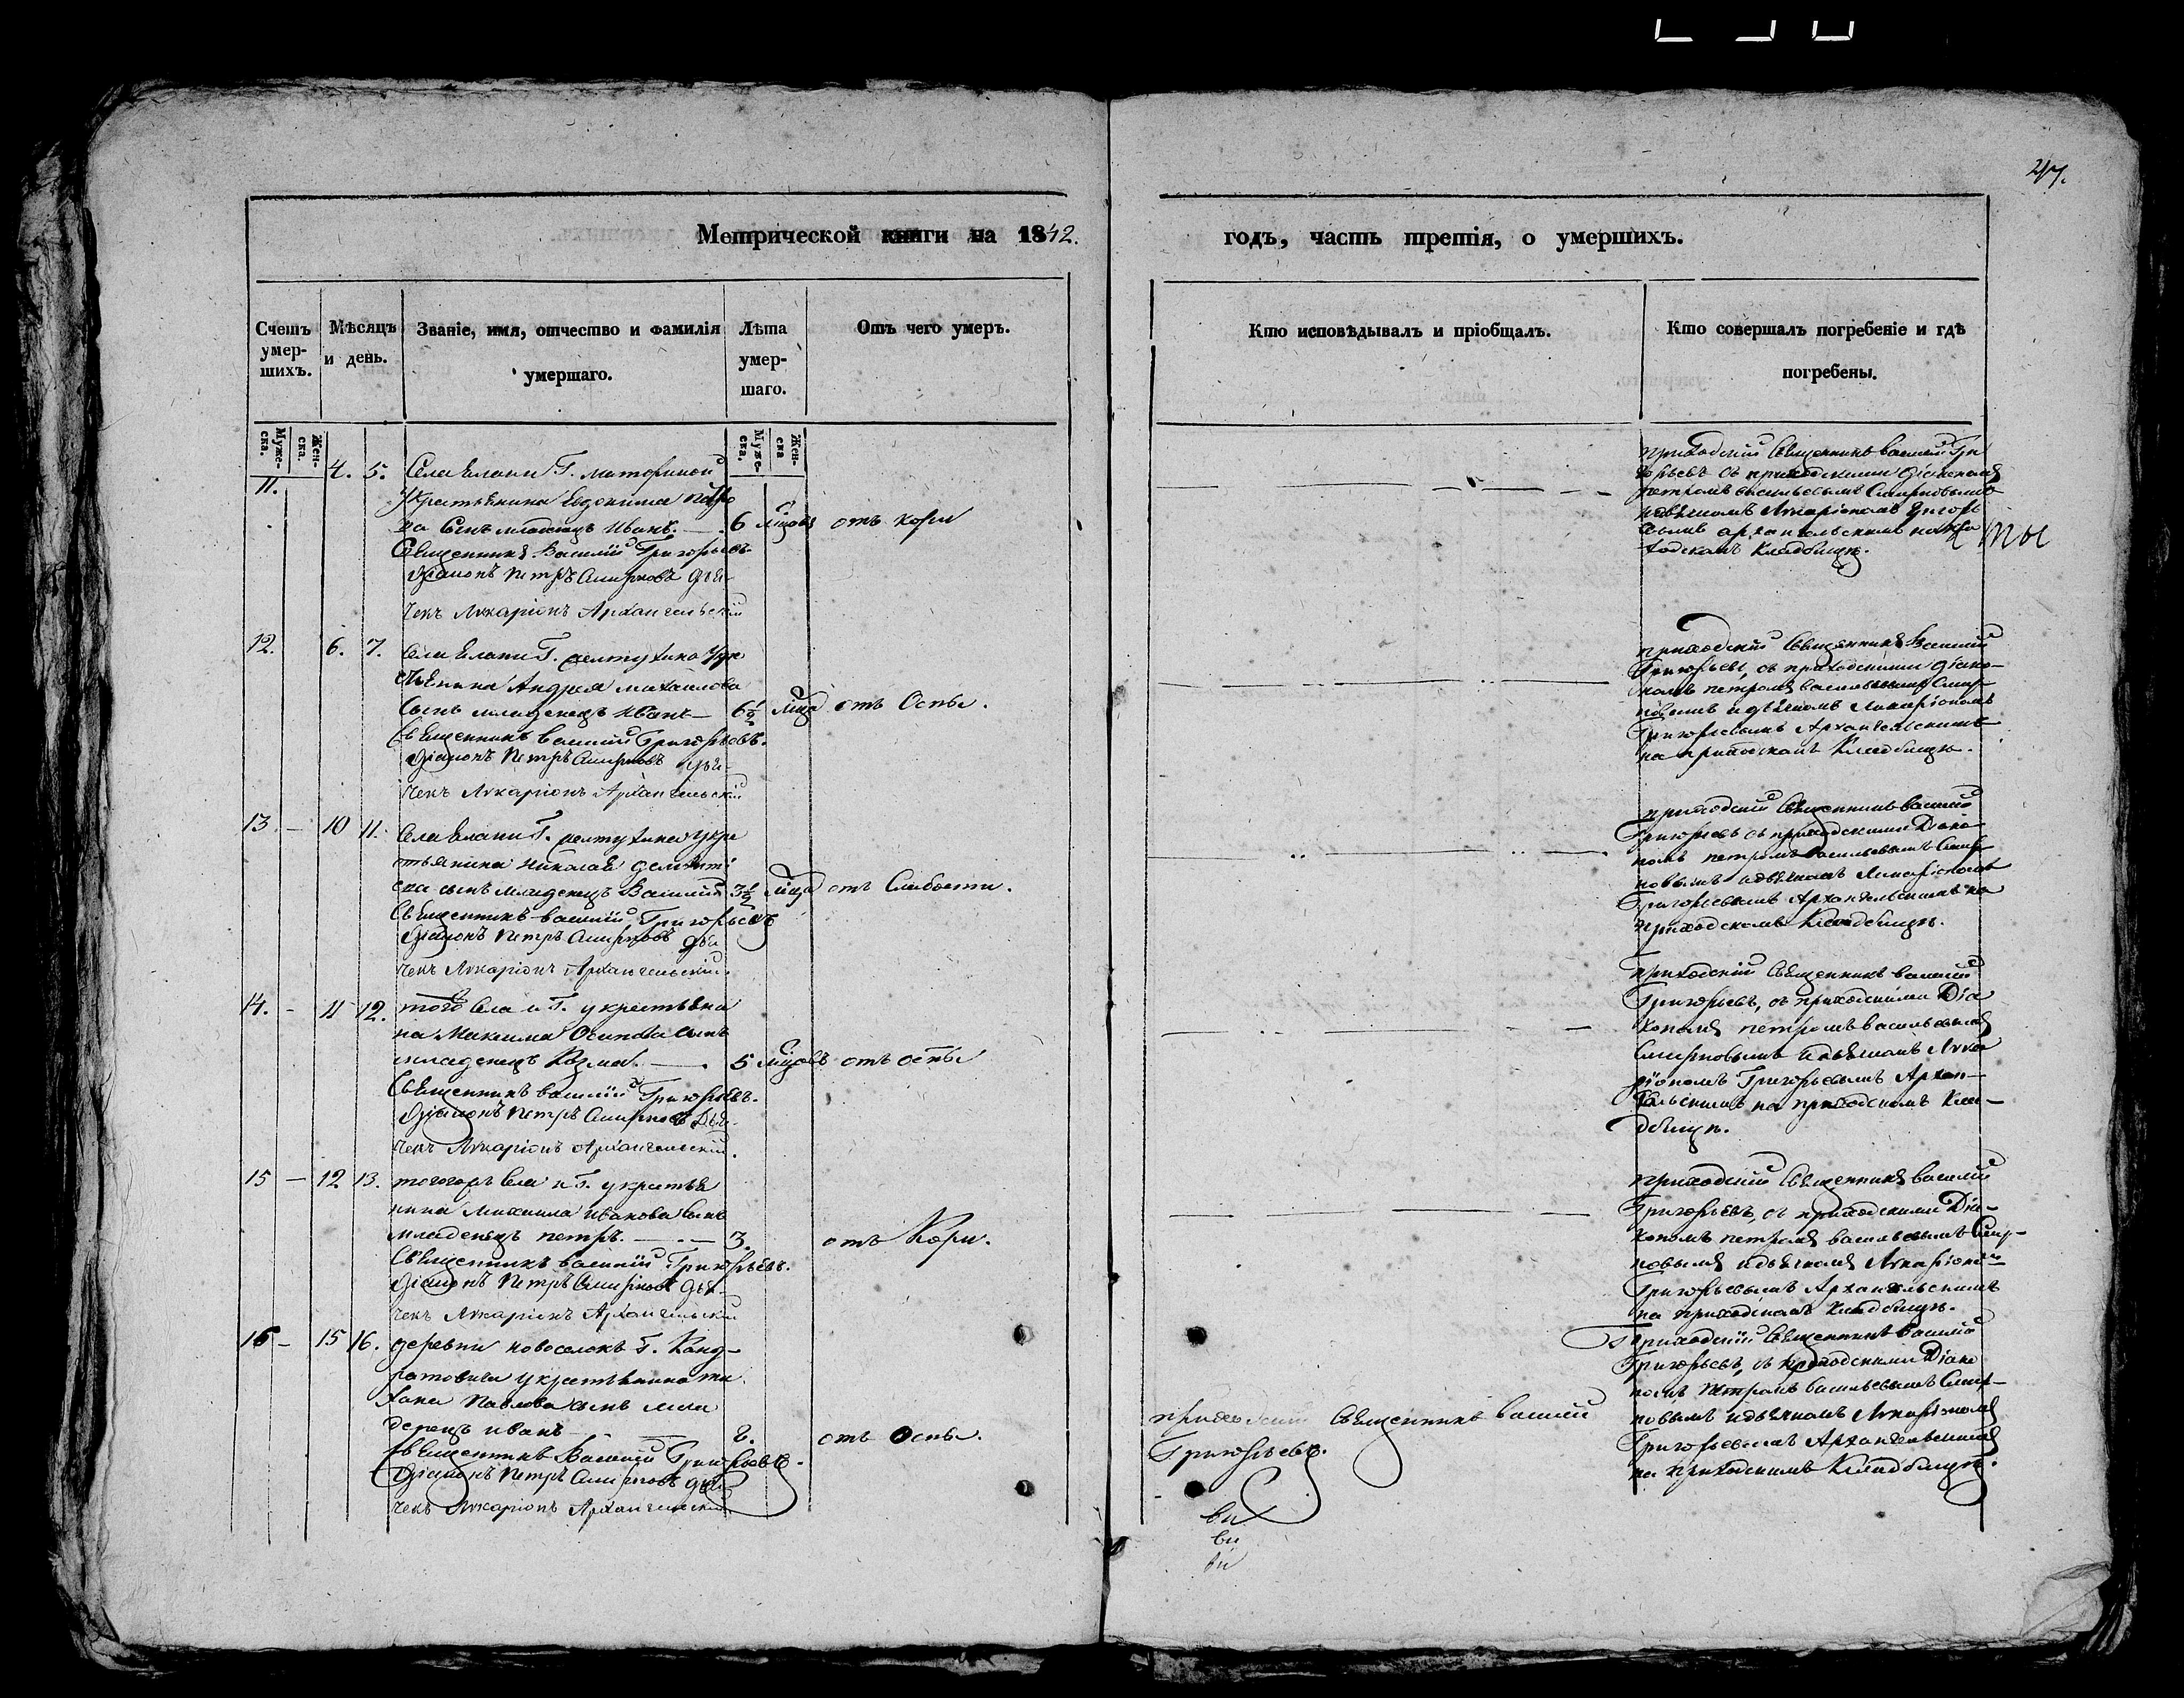 47.
Метрической книги на 1842.
годъ, часть третія, о умершихъ.
Счетъ умер-
шихъ.
Мѣсяцъ
и день.
Званіе, имя, отчество и фамилія
умершаго.
Лѣта
умер-
шаго.
Отъ чего умеръ.
Кто исповѣдывалъ и пріобщалъ.
Кто совершалъ погребеніе и гдѣ
погребены.
Муже-
ска.
Жен-
ска.
Муже-
ска.
Жен-
ска
11. 4. 5. Села Г.
укрестьянина Евдокима Петро
ва сынъ младенецъ Иванъ. — 6 мцовъ отъ кори
Священникъ Василій Григорьевъ.
Діаконъ Петръ Смирновъ дья-
чекъ Иларіонъ Архангельскій
приходскій Священникъ Василій Гри
горьевъ съ приходскими діакономъ
петромъ васильевымъ Смирновымъ
идьячкомъ Иларіономъ Григорь
евымъ архангельскимъ на прихо
дскомъ Кладбищѣ.
12. 6. 7. Села Г. укре
стьянина Андрея михаилова
сынъ младенецъ Иванъ — 6½ мца отъ Оспы.
Священникъ Василій Григорьевъ.
Діаконъ Петръ Смирновъ дья-
чекъ Иларіонъ Архангельскій
приходскій Священникъ Василій
Григорьевъ, съ приходскими діако-
номъ петромъ васильевымъ Смир-
новымъ и дьячкомъ Иларіономъ
Григорьевымъ Архангельскимъ
на приходскомъ Кладбищѣ.
13. — 10 11. Села Г. укре
стьянина Николая дементі
ева сынъ младенецъ Василій 3½ мца отъ Слабости.
Священникъ Василій Григорьевъ
Діаконъ Петръ Смирновъ дья
чекъ Иларіонъ Архангельскій.
приходскій Священникъ Василій
Григорьевъ съ приходскими Діако
номъ петромъ Васильевымъ Смир
новымъ идьячкомъ Иларіономъ
Григорьевымъ Архангельскимъ на
приходскомъ Кладбищѣ.
14. - 11 12. того села и Г. укрестьяни
на Максима Осипова сынъ
младенецъ Козма. — 5 мцовъ отъ оспы
Священникъ Василій Григорьевъ.
Діаконъ Петръ Смирновъ Дья-
чекъ Иларіонъ Архангельскій.
приходскій Священникъ Василій
Григорьевъ, съ приходскими Діа
кономъ петромъ васильевымъ
Смирновымъ идьячкомъ Ила
ріономъ Григорьевымъ Архан-
гельскимъ на приходскомъ Кла-
дбищѣ.
15 — 12 13. тогожъ села и Г. укрестья
нина Михаила Иванова сынъ
младенецъ петръ. — 3. отъ Кори.
Священникъ Василій Григорьевъ.
Діаконъ Петръ Смирновъ дья-
чекъ Иларіонъ Архангельскій
приходскій Священникъ Василій
Григорьевъ, съ приходскими Діа-
кономъ петромъ васильевымъ Смир-
новымъ идьячкомъ Иларіономъ
Григорьевымъ Архангельскимъ
на приходскомъ Кладбищѣ.
16 - 15 16. деревни новоселокъ Г. Конд-
ратовича укрестьянина ти
хона Павлова сынъ мла
денецъ иванъ — 2. отъ Оспы.
Священникъ Василій Григорьевъ.
Діаконъ Петръ Смирновъ дья
чекъ Иларіонъ Архангельскій
приходскій Священникъ Василій
Григорьевъ.
приходскій Священникъ Василій
Григорьевъ, съ приходскими Діако
номъ петромъ Васильевымъ Смир-
новымъ идьячкомъ Иларіономъ
Григорьевымъ Архангельскимъ
на приходскомъ Кладбищѣ.